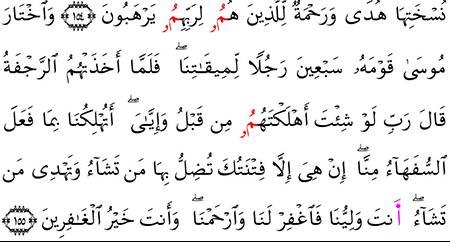 نُسْخَتِهَا هُدًى وَرَحْمَةٌ لِّلَّذِينَ هُمُۥ لِرَبِّهِمُۥ يَرْهَبُونَ ﴿١٥٤﴾ وَٱخْتَارَ
مُوسَىٰ قَوْمَهُۥ سَبْعِينَ رَجُلًا لِّمِيقَـٰتِنَا ۖ فَلَمَّآ أَخَذَتْهُمُ ٱلرَّجْفَةُ
قَالَ رَبِّ لَوْ شِئْتَ أَهْلَكْتَهُمُۥ مِن قَبْلُ وَإِيَّـٰىَ ۖ أَتُهْلِكُنَا بِمَا فَعَلَ
ٱلسُّفَهَآءُ مِنَّآ ۖ إِنْ هِىَ إِلَّا فِتْنَتُكَ تُضِلُّ بِهَا مَن تَشَآءُ وَتَهْدِى مَن
تَشَآءُ ۖ أَنتَ وَلِيُّنَا فَٱغْفِرْ لَنَا وَٱرْحَمْنَا ۖ وَأَنتَ خَيْرُ ٱلْغَـٰفِرِينَ ﴿١٥٥﴾